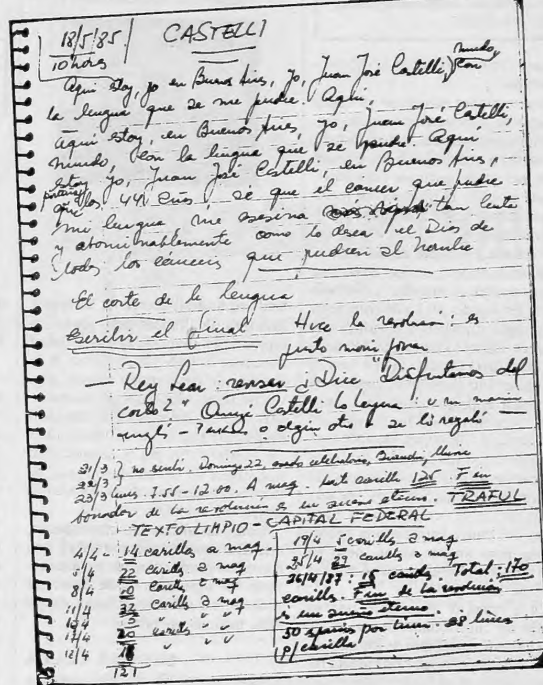 18/5/85
CASTELLI
10 horas
Aquí estoy, yo en Buenos Aires, yo, Juan José Castelli, mudo, con
la lengua que se me pudre. Aquí,
Aquí estoy, en Buenos Aires, yo, Juan José Castelli,
mudo, con la lengua que se pudre. Aquí
estoy yo, Juan José Castelli, en Buenos Aires,
a los 44 años, sé que el cáncer que pudre
mi lengua me asesina tan lenta
y abominablemente como lo desea el Dios de
todos los cánceres que pudren al hombre
El corte de la lengua
Escribir el final
Hice la revolución: es
justo morir joven
— Rey Lear: ¿Dice "Disfrutemos del
corto?" Quizá Castelli lo leyera: o un marino
inglés - o algún otro se lo regaló —
21/3 } no escribí. Domingo 22, asado
22/3
23/3 lunes 7.55-12.00. A maq. hasta carilla 125. Fin
borrador de La revolución es un sueño eterno. TRAFUL
TEXTO LIMPIO - CAPITAL FEDERAL
4/4 - 14 carillas a maq.
5/4 22 carillas a maq
8/4 10 carillas a maq
11/4 32 carillas a maq
5 " " "
17/4 20 carillas " "
18 " " "
121
19/4 5 carillas a maq
25/4 29 carillas a maq
26/4/87: 15 carills. Total: 170
carillas. Fin de La revolución
es un sueño eterno.
50 espacios por línea. 28 líneas
p/carilla